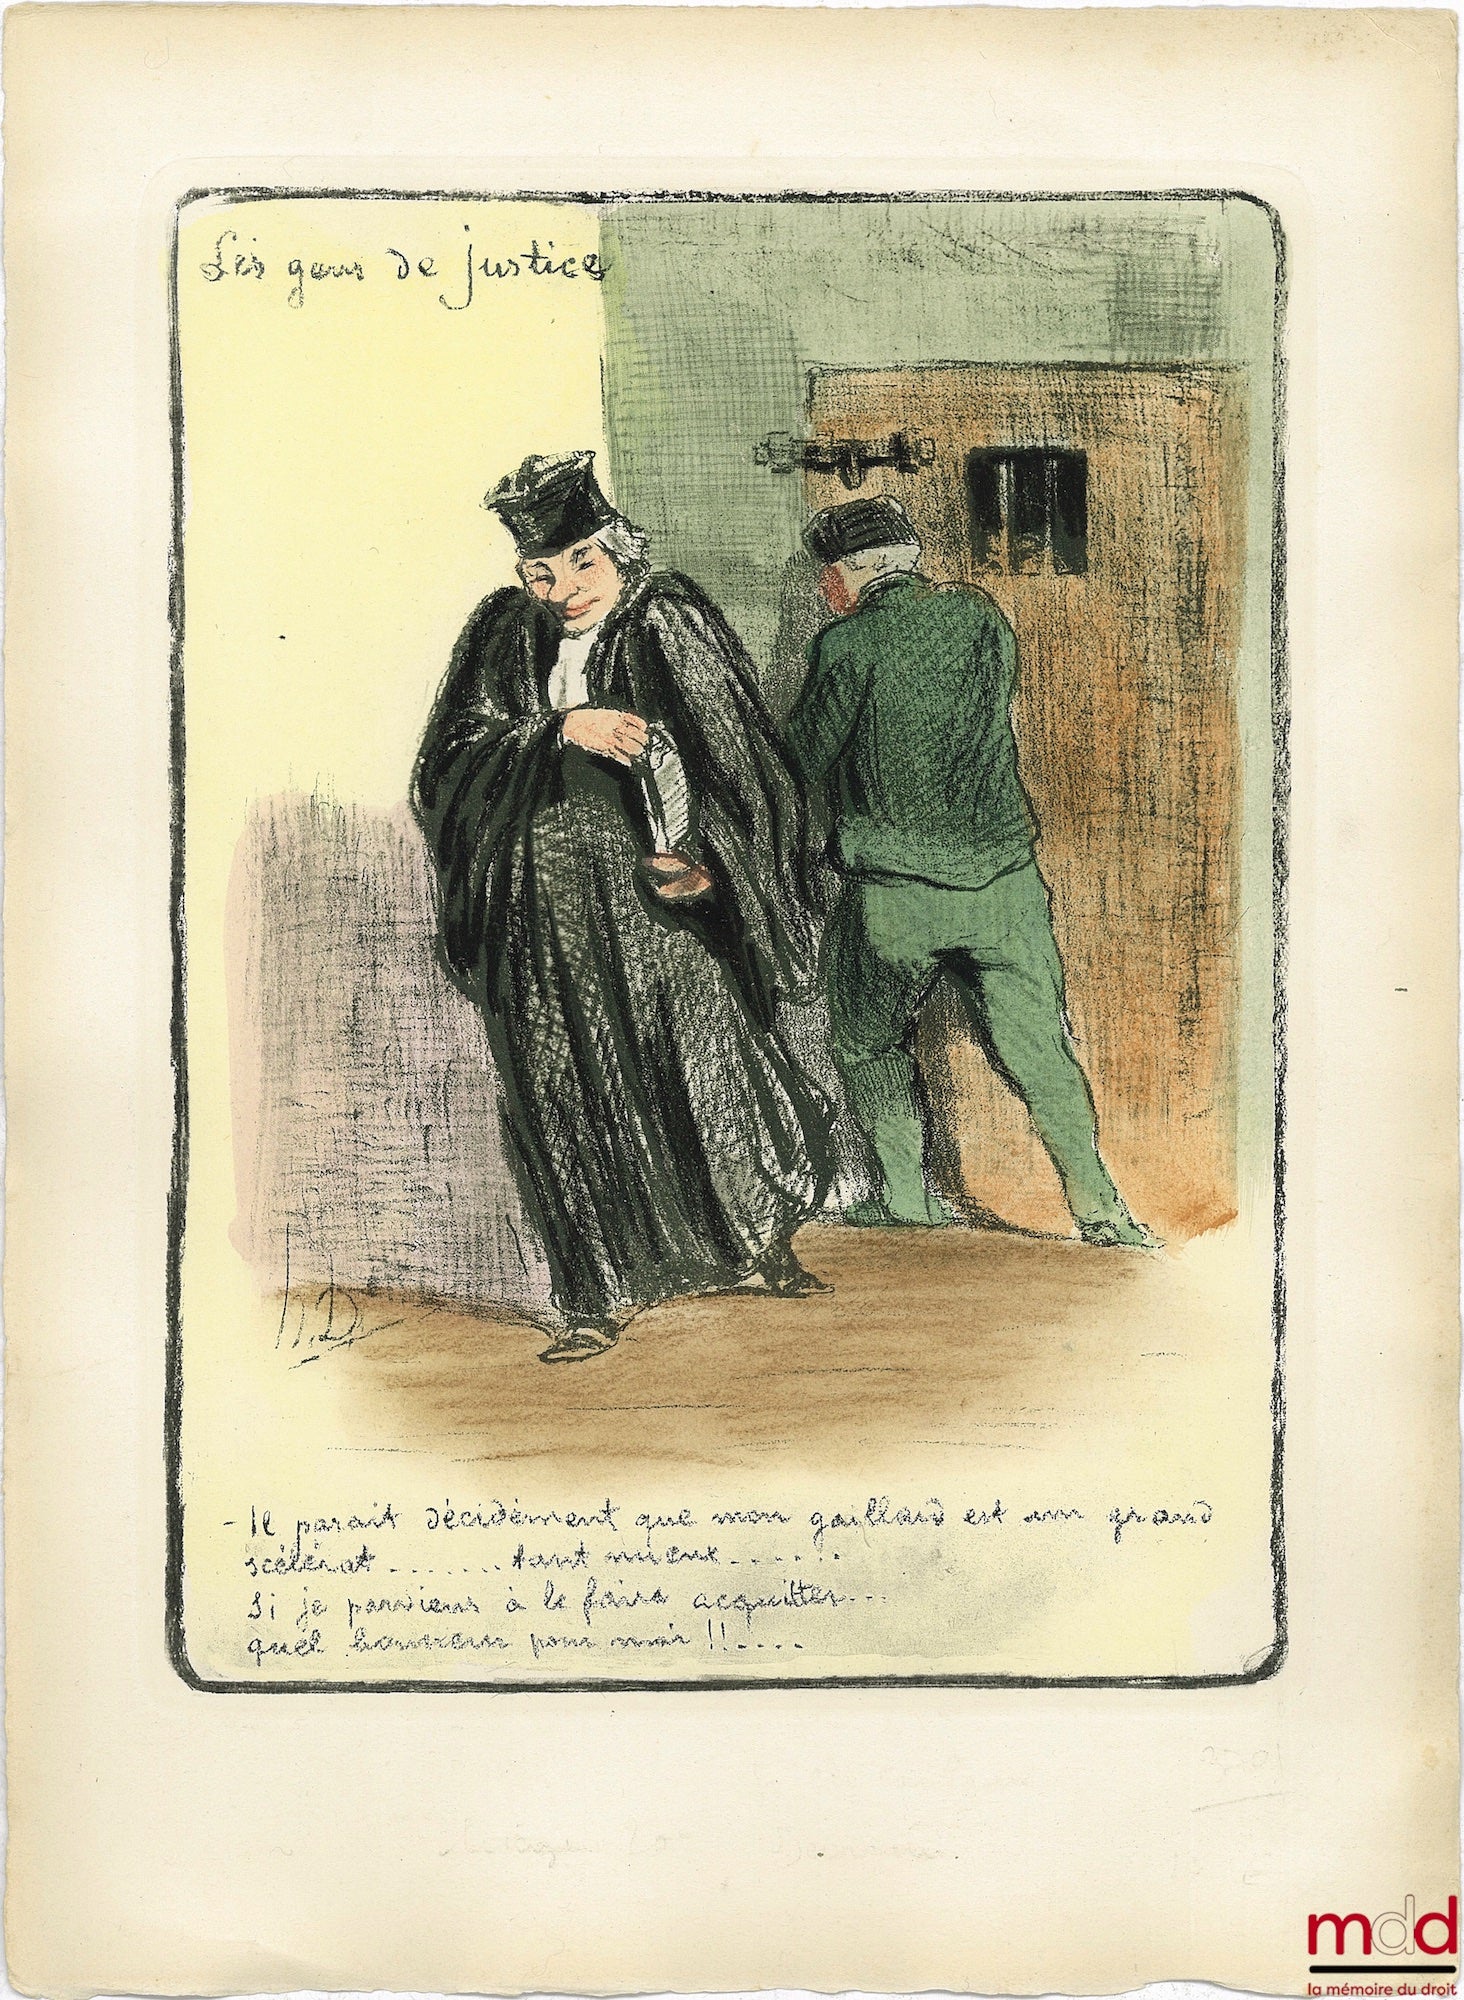 Les gens de justice
h.D.
- Il parait décidément que mon gaillard est un grand
scélérat ....... tant mieux ......
Si je parviens à le faire acquitter...
quel honneur pour moi !!....
mdd
la mémoire du droit